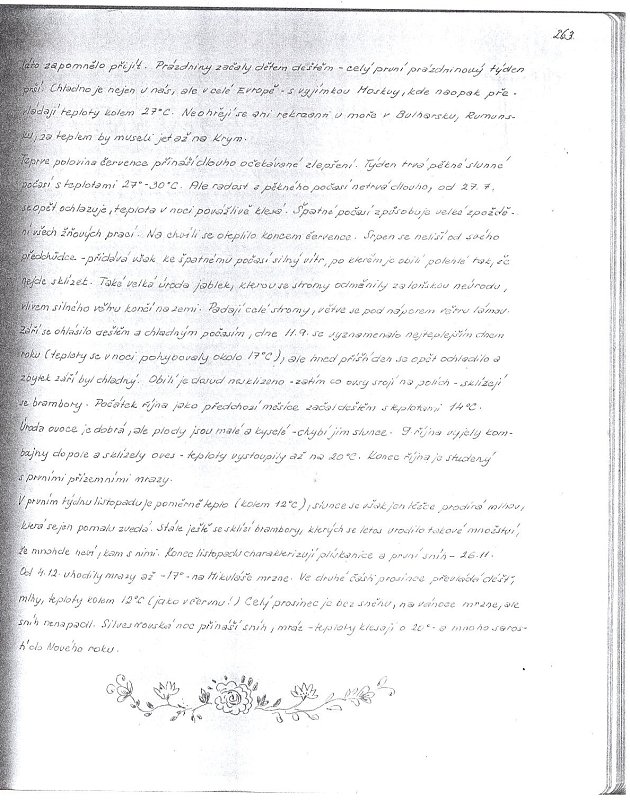 263
léto zapomnělo přijít. Prázdniny začaly dětem deštěm - celý první prázdninový týden
prší. Chladno je nejen u nás, ale v celé Evropě - s vyjímkou Moskvy, kde naopak pře-
vládají teploty kolem 27°C. Neohřejí se ani rekreanti u moře v Bulharsku, Rumuns-
ku, za teplem by museli jet až na Krym.
Teprve polovina července přináší dlouho očekávané zlepšení. Týden trvá pěkné slunné
počasí s teplotami 27°-30°C. Ale radost z pěkného počasí netrvá dlouho, od 27.7.
se opět ochlazuje, teplota v noci povážlivě klesá. Špatné počasí způsobuje velké zpoždě-
ní všech žňových prací. Na chvíli se oteplilo koncem července. Srpen se neliší od svého
předchůdce - přidává však ke špatnému počasí silný vítr, po kterém je obilí polehlé tak, že
nejde sklízet. Také velká úroda jablek, kterou se stromy odměnily za loňskou neúrodu,
vlivem silného větru končí na zemi. Padají celé stromy, větve se pod náporem větru lámou.
Září se ohlásilo deštěm a chladným počasím, dne 11.9. se vyznamenalo nejteplejším dnem
roku (teploty se v noci pohybovaly okolo 17°C), ale hned příští den se opět ochladilo a
zbytek září byl chladný. Obilí je dosud nesklizeno - zatím co ovsy stojí na polích - sklízejí
se brambory. Počátek října jako předchozí měsíce začal deštěm s teplotami 14°C.
Úroda ovoce je dobrá, ale plody jsou malé a kyselé - chybí jim slunce. 9. října vyjely kom-
bajny do pole a sklízely oves - teploty vystoupily až na 20°C. Konec října je studený
s prvními přízemními mrazy.
V prvním týdnu listopadu je poměrně teplo (kolem 12°C), slunce se však jen těžce prodírá mlhou,
která se jen pomalu zvedá. Stále ještě se sklízí brambory, kterých se letos urodilo takové množství,
že mnohde neví, kam s nimi. Konec listopadu charakterizují plískanice a první sníh - 26.11.
Od 4.12. uhodily mrazy až -17° - na Mikuláše mrzne. Ve druhé části prosince převládá déšť,
mlhy, teploty kolem 12°C (jako v červnu!) Celý prosinec je bez sněhu, na vánoce mrzne, ale
sníh nenapadl. Silvestrovská noc přináší sníh, mráz - teploty klesají o 20° - a mnoho staros-
tí do Nového roku.